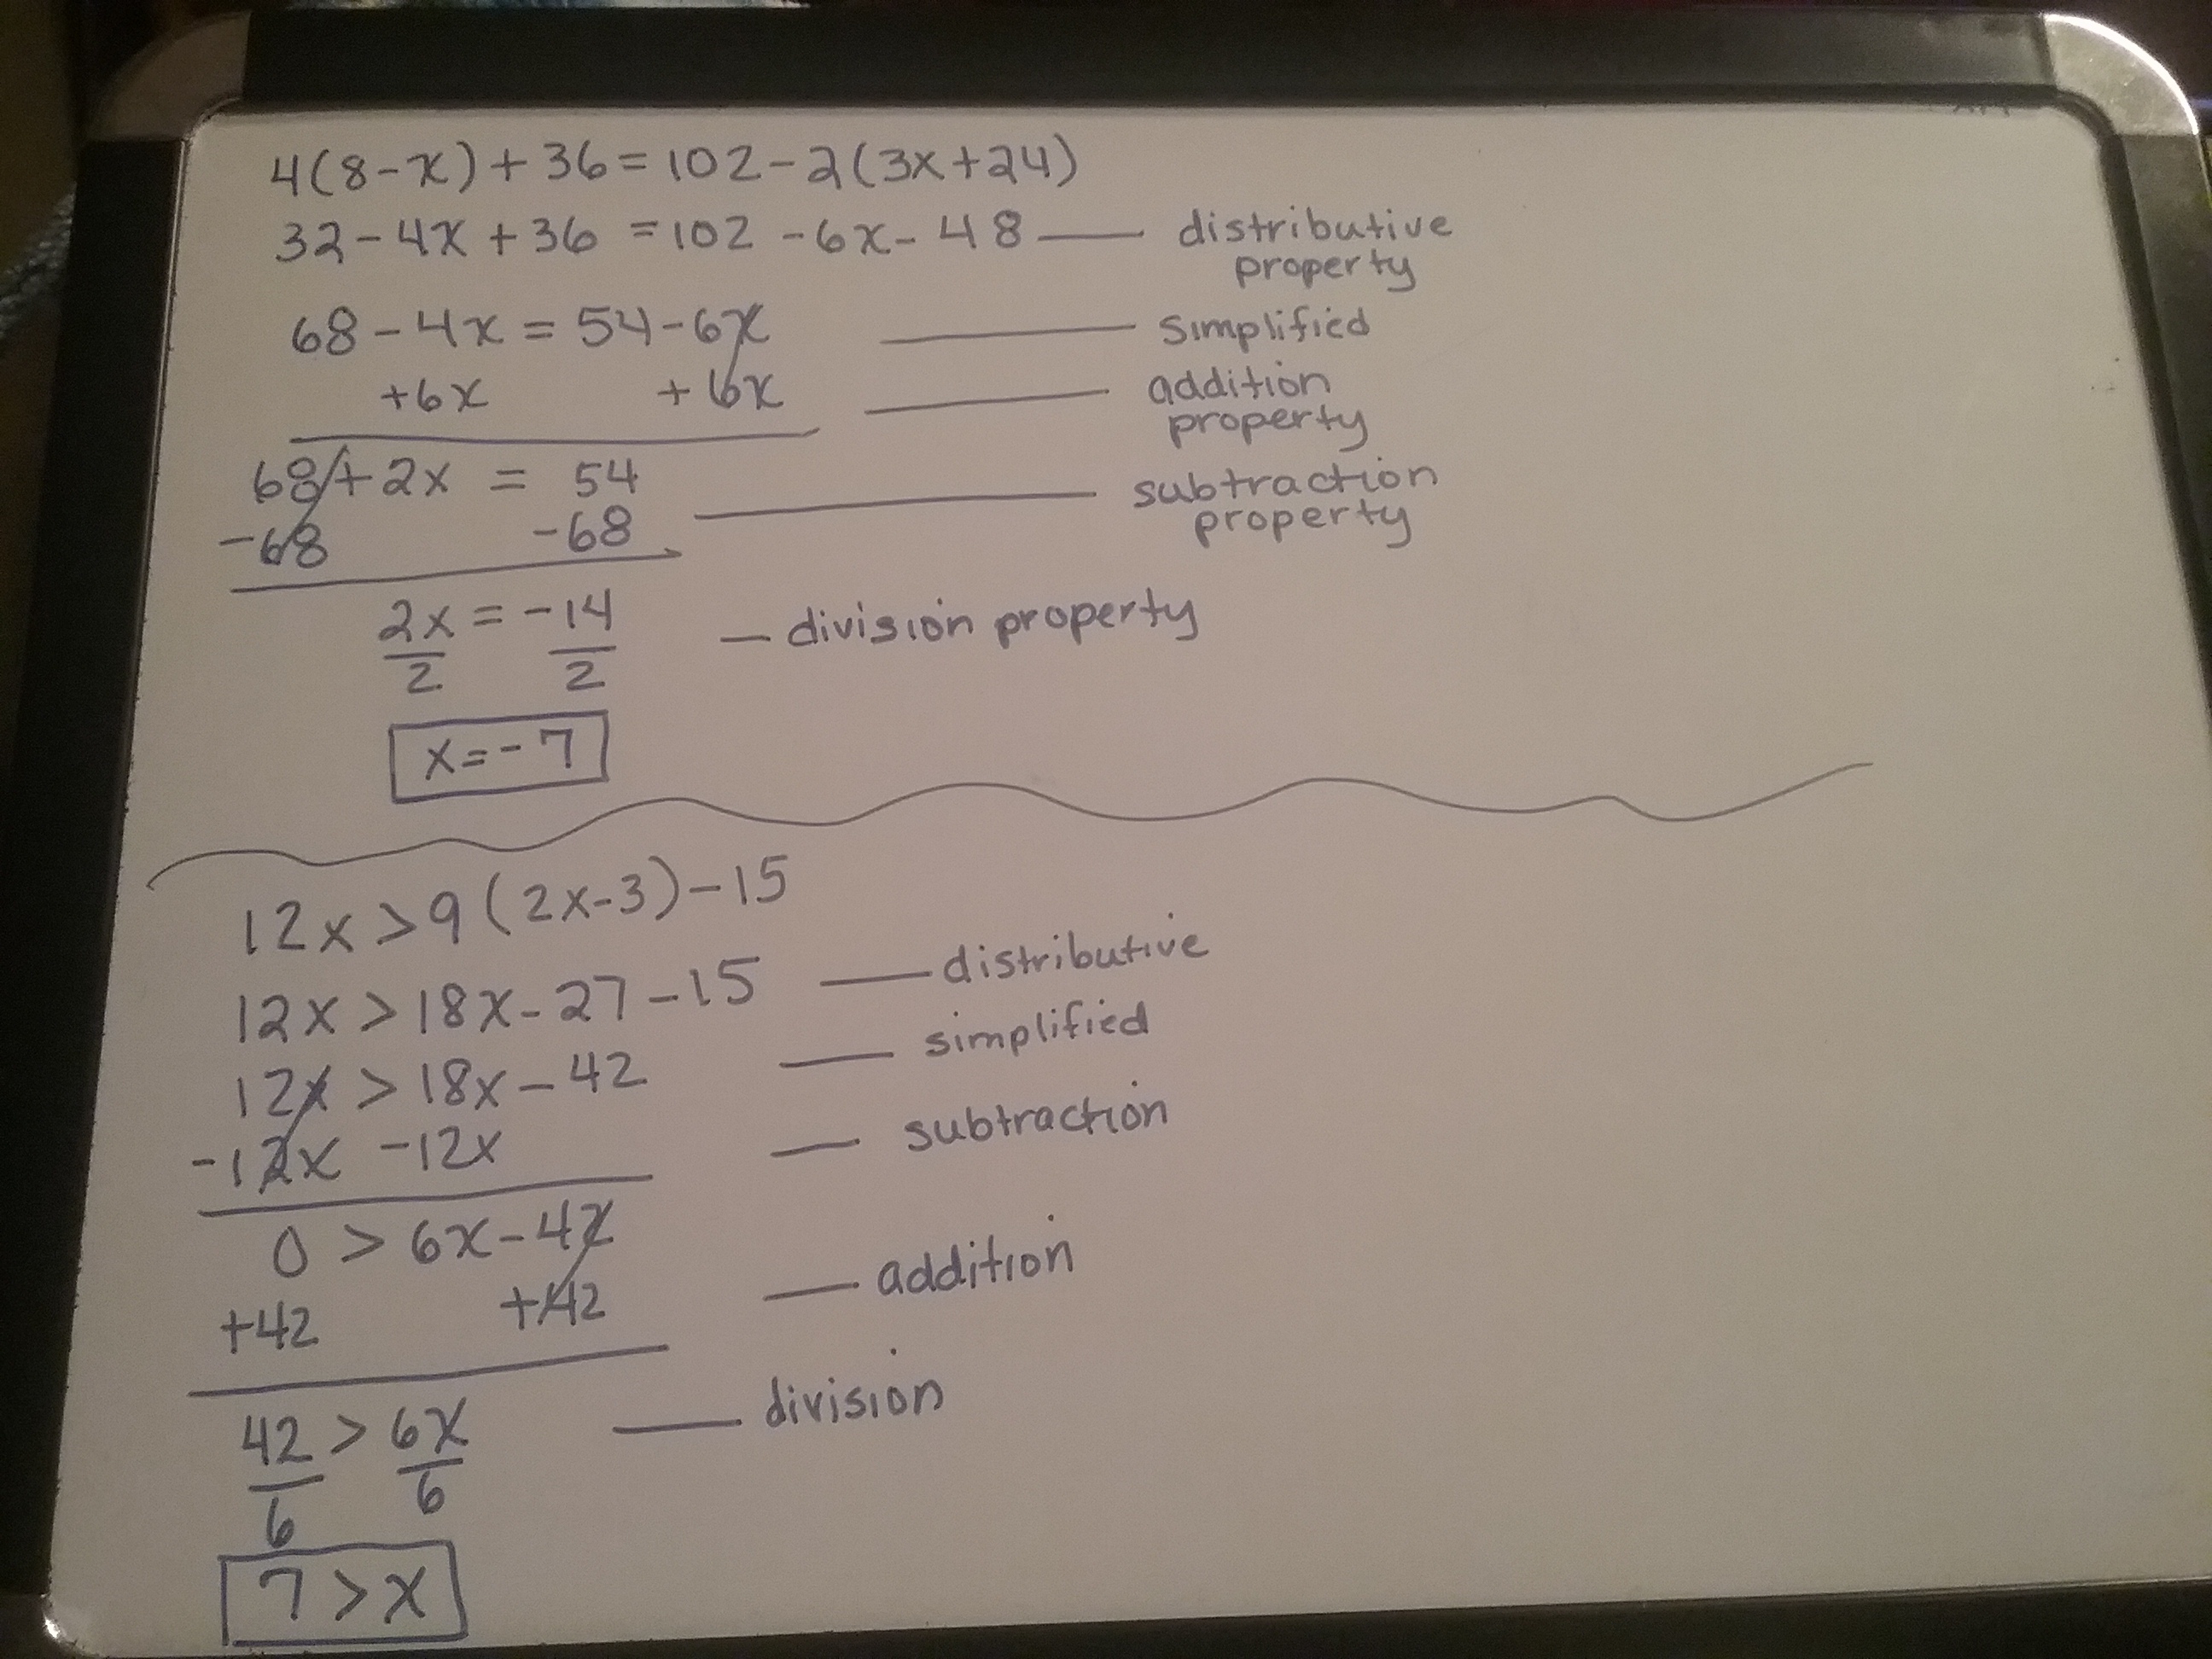 4(8-x)+36=102-2(3x+24)
32-4x+36=102-6x-48 — distributive
property
68-4x=54-6x — simplified
+6x +6x — addition
property
68+2x = 54
-68 -68 — subtraction
property
2x=-14 — division property
2 2
x=-7
12x>9(2x-3)-15
12x>18x-27-15 — distributive
12x>18x-42 — simplified
-12x -12x — subtraction
0>6x-42
+42 +42 — addition
42>6x — division
6 6
7>x